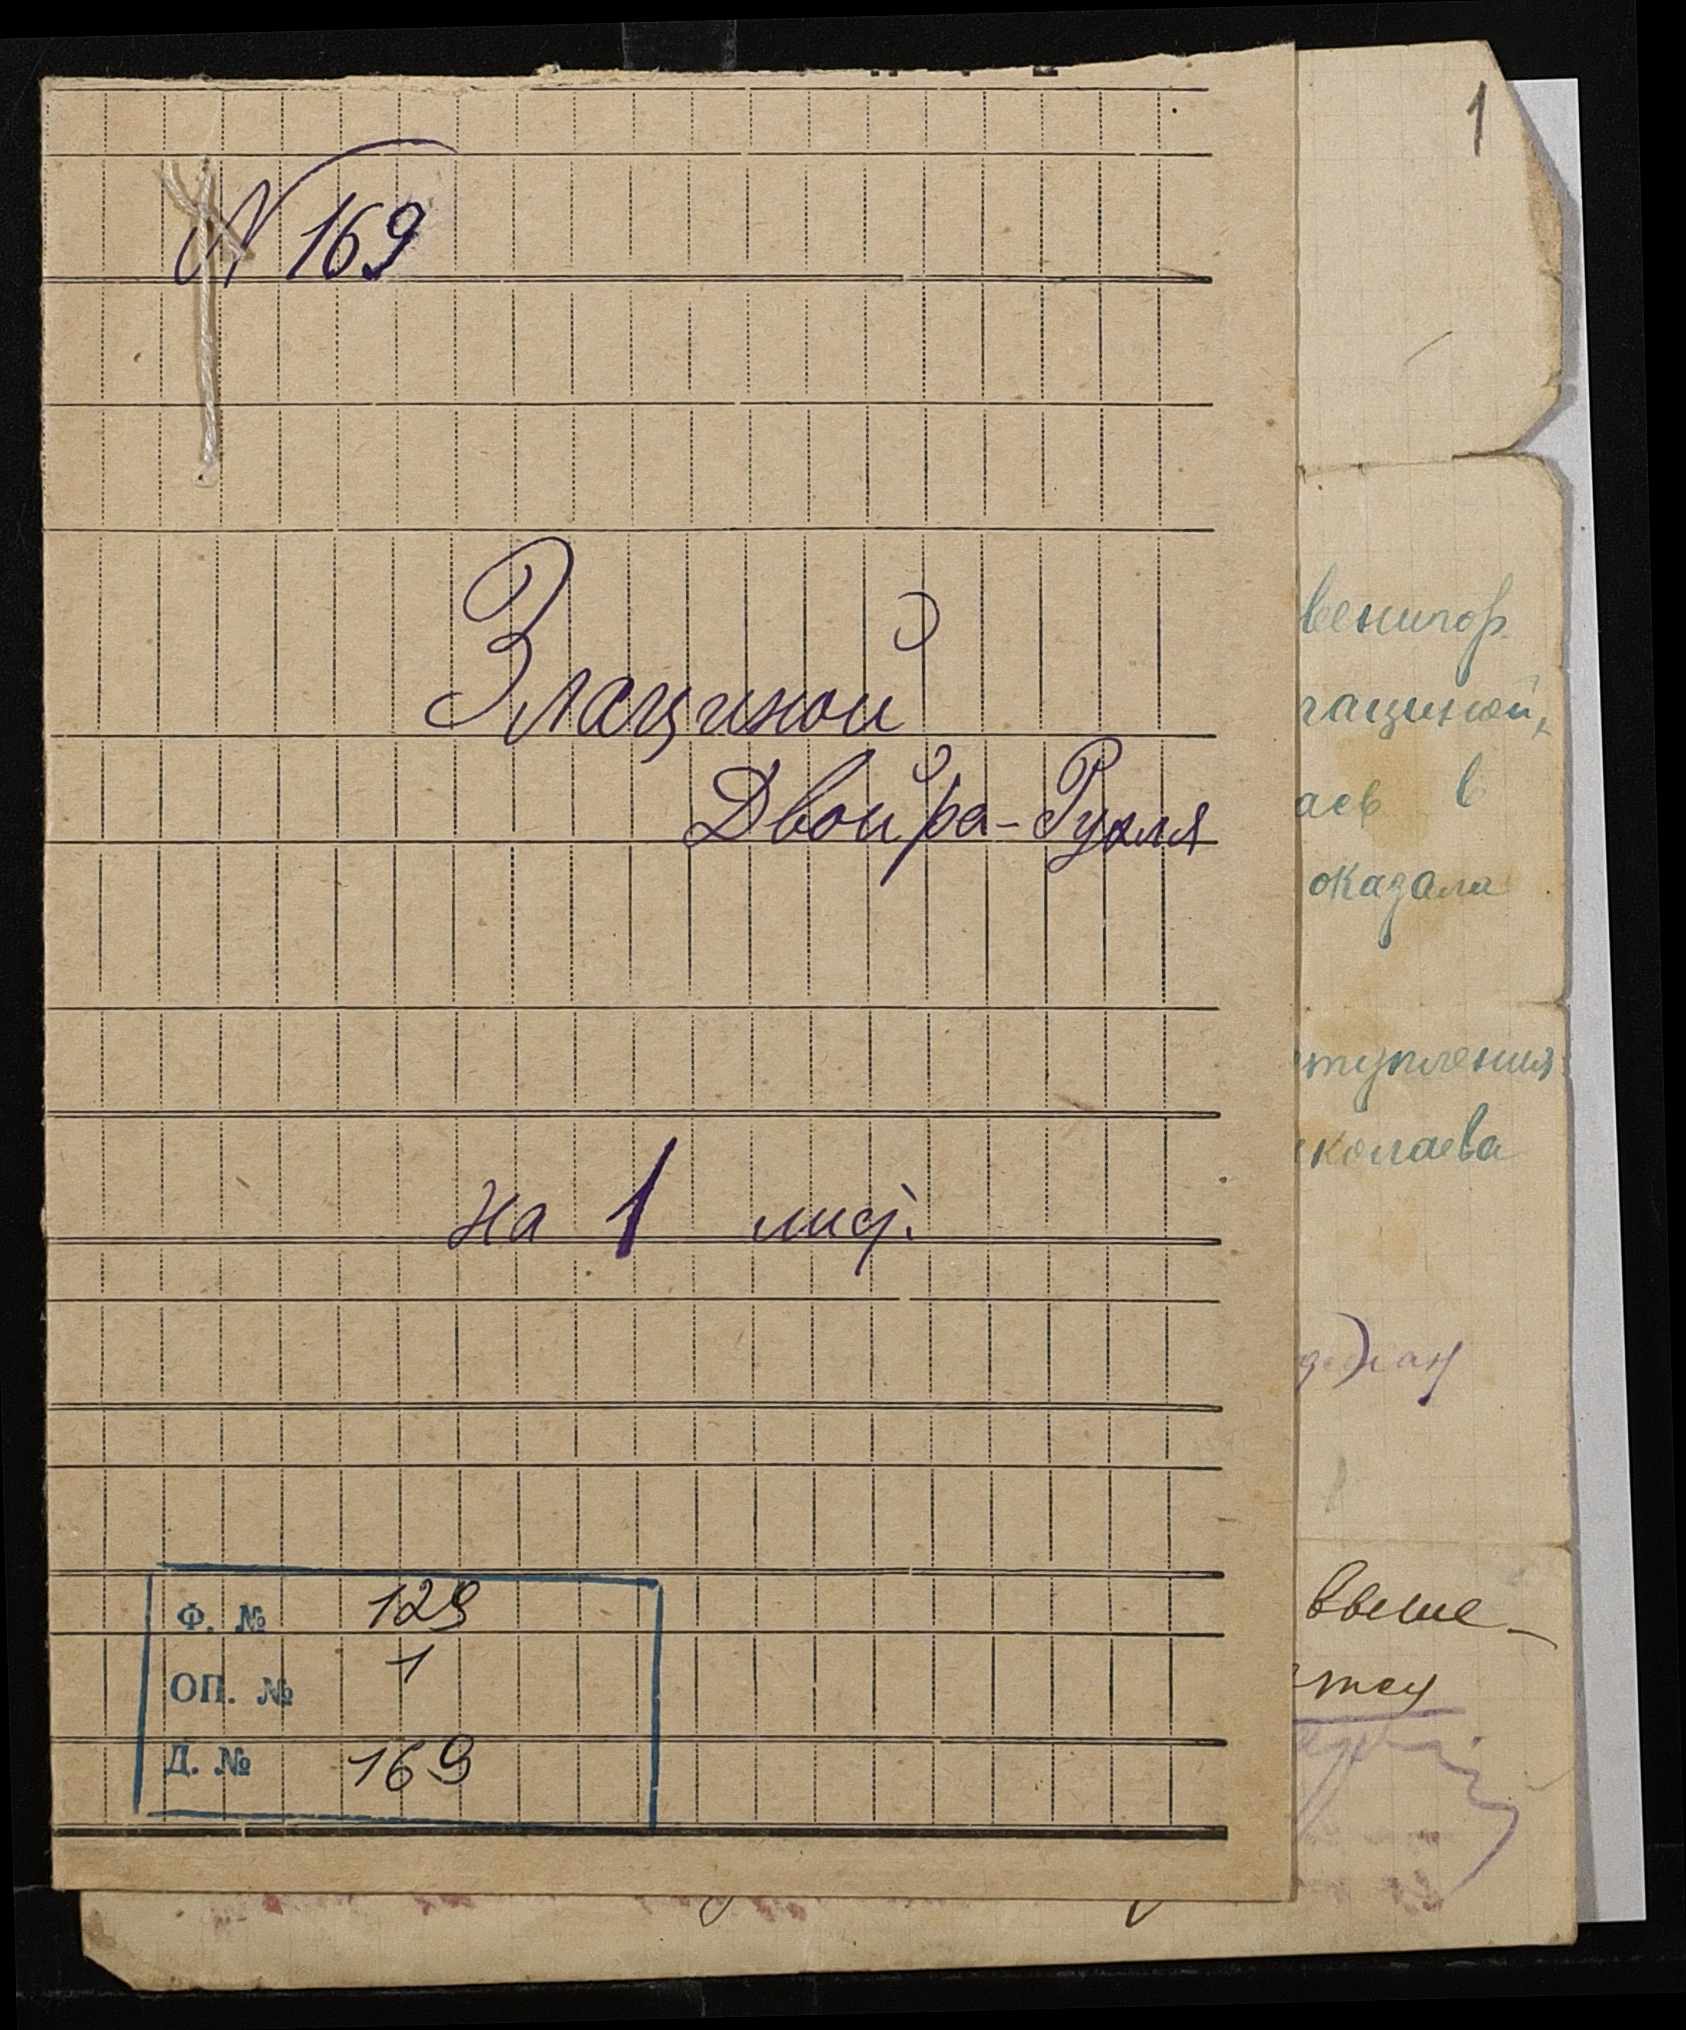 1
N 169
Злациной
Двойра-Рухля
на 1 лист.
Ф. № 129
ОП. № 1
Д. № 169
венигор
гациной,
аев в
оказала
ступления
иколаева
выше-